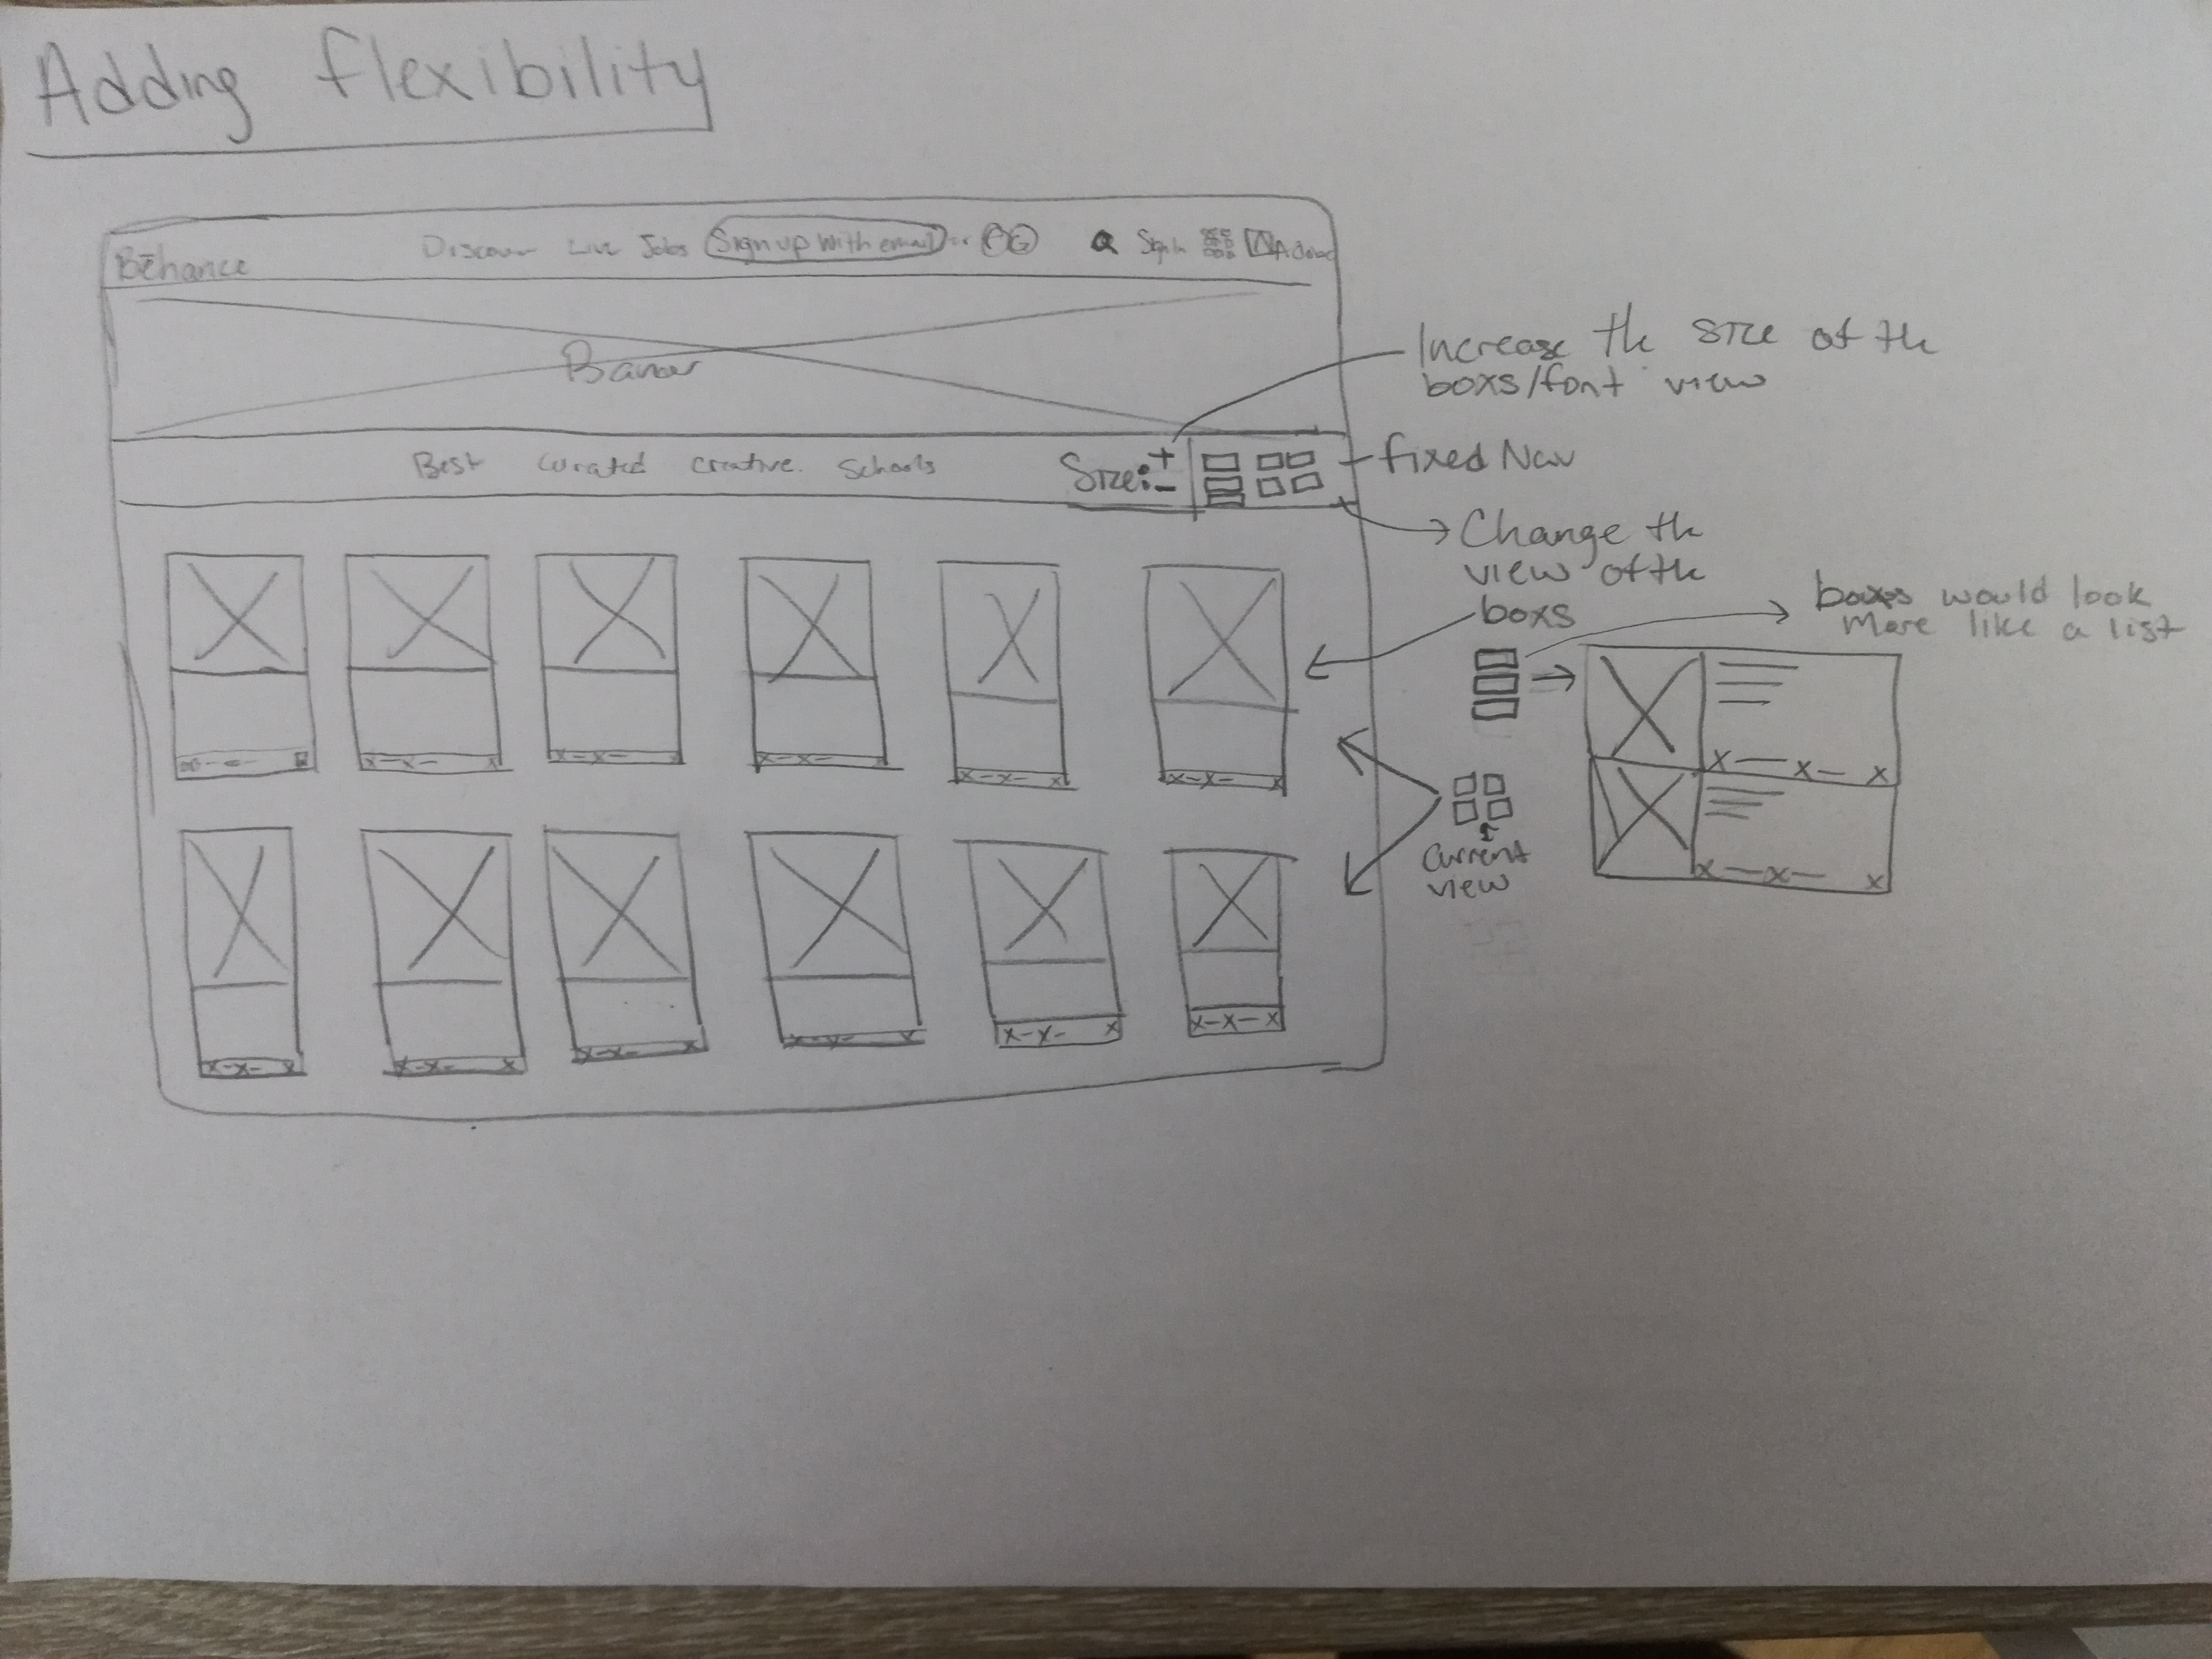 Adding flexibility
Bēhance Discover Live Jobs Sign up with email or G Sign In Adobe
Banner
Best curated creative Schools Size: + -
Increase the size of the
boxs/font view
fixed Nav
Change the
view of the
boxs
boxes would look
More like a list
Current
view